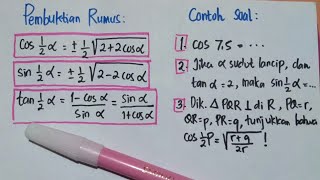 Pembuktian Rumus:
cos ½ α = ± ½ √2+2cosα
sin ½ α = ± ½ √2-2cosα
tan ½ α = 1-cosα / sin α = sinα / 1+cosα
Contoh Soal:
1. cos 7.5 = ...
2. Jika α sudut lancip, dan
tan α = 2, maka sin ½ α = ...
3. Dik. △ PQR ⊥ di R, PQ=r,
QR=p, PR=q, tunjukkan bahwa
cos ½ P = √r+q / 2r !